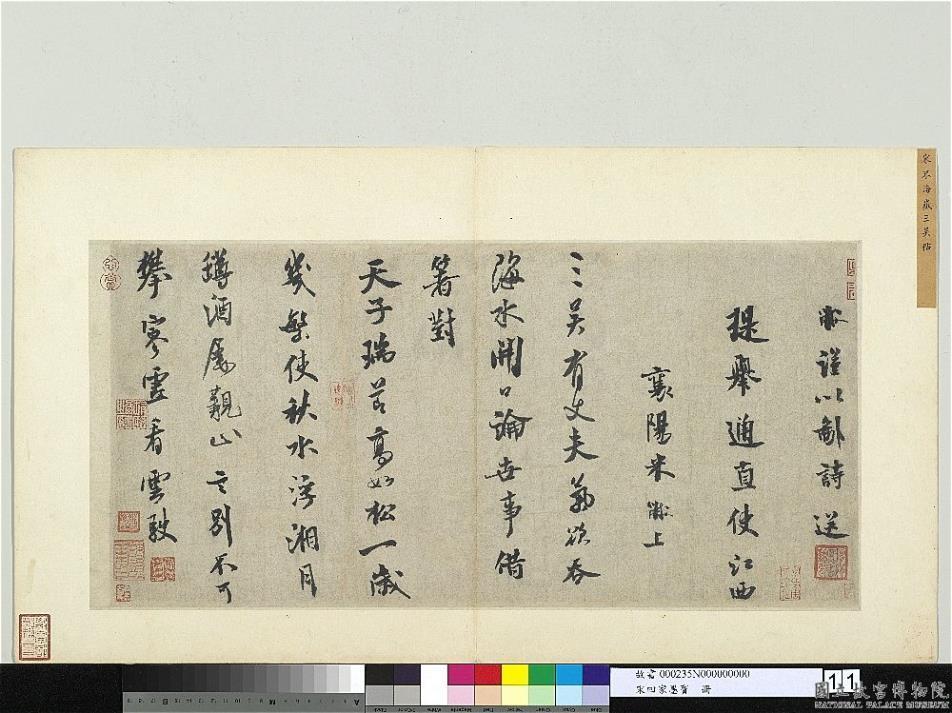 宋米海嶽三吳帖
黻謹以鄙詩送
提舉通直使江西
襄陽米黻上
三吳有丈夫氣欲吞
海水開口論世事借
箸對
天子瑞節高如松一歲
幾繁使秋水浮湘月
罇酒屢親山之別不可
攀寒雲看雲駛
故書 000235N000000000
宋四家墨寶 冊
11
國立故宮博物院
NATIONAL PALACE MUSEUM